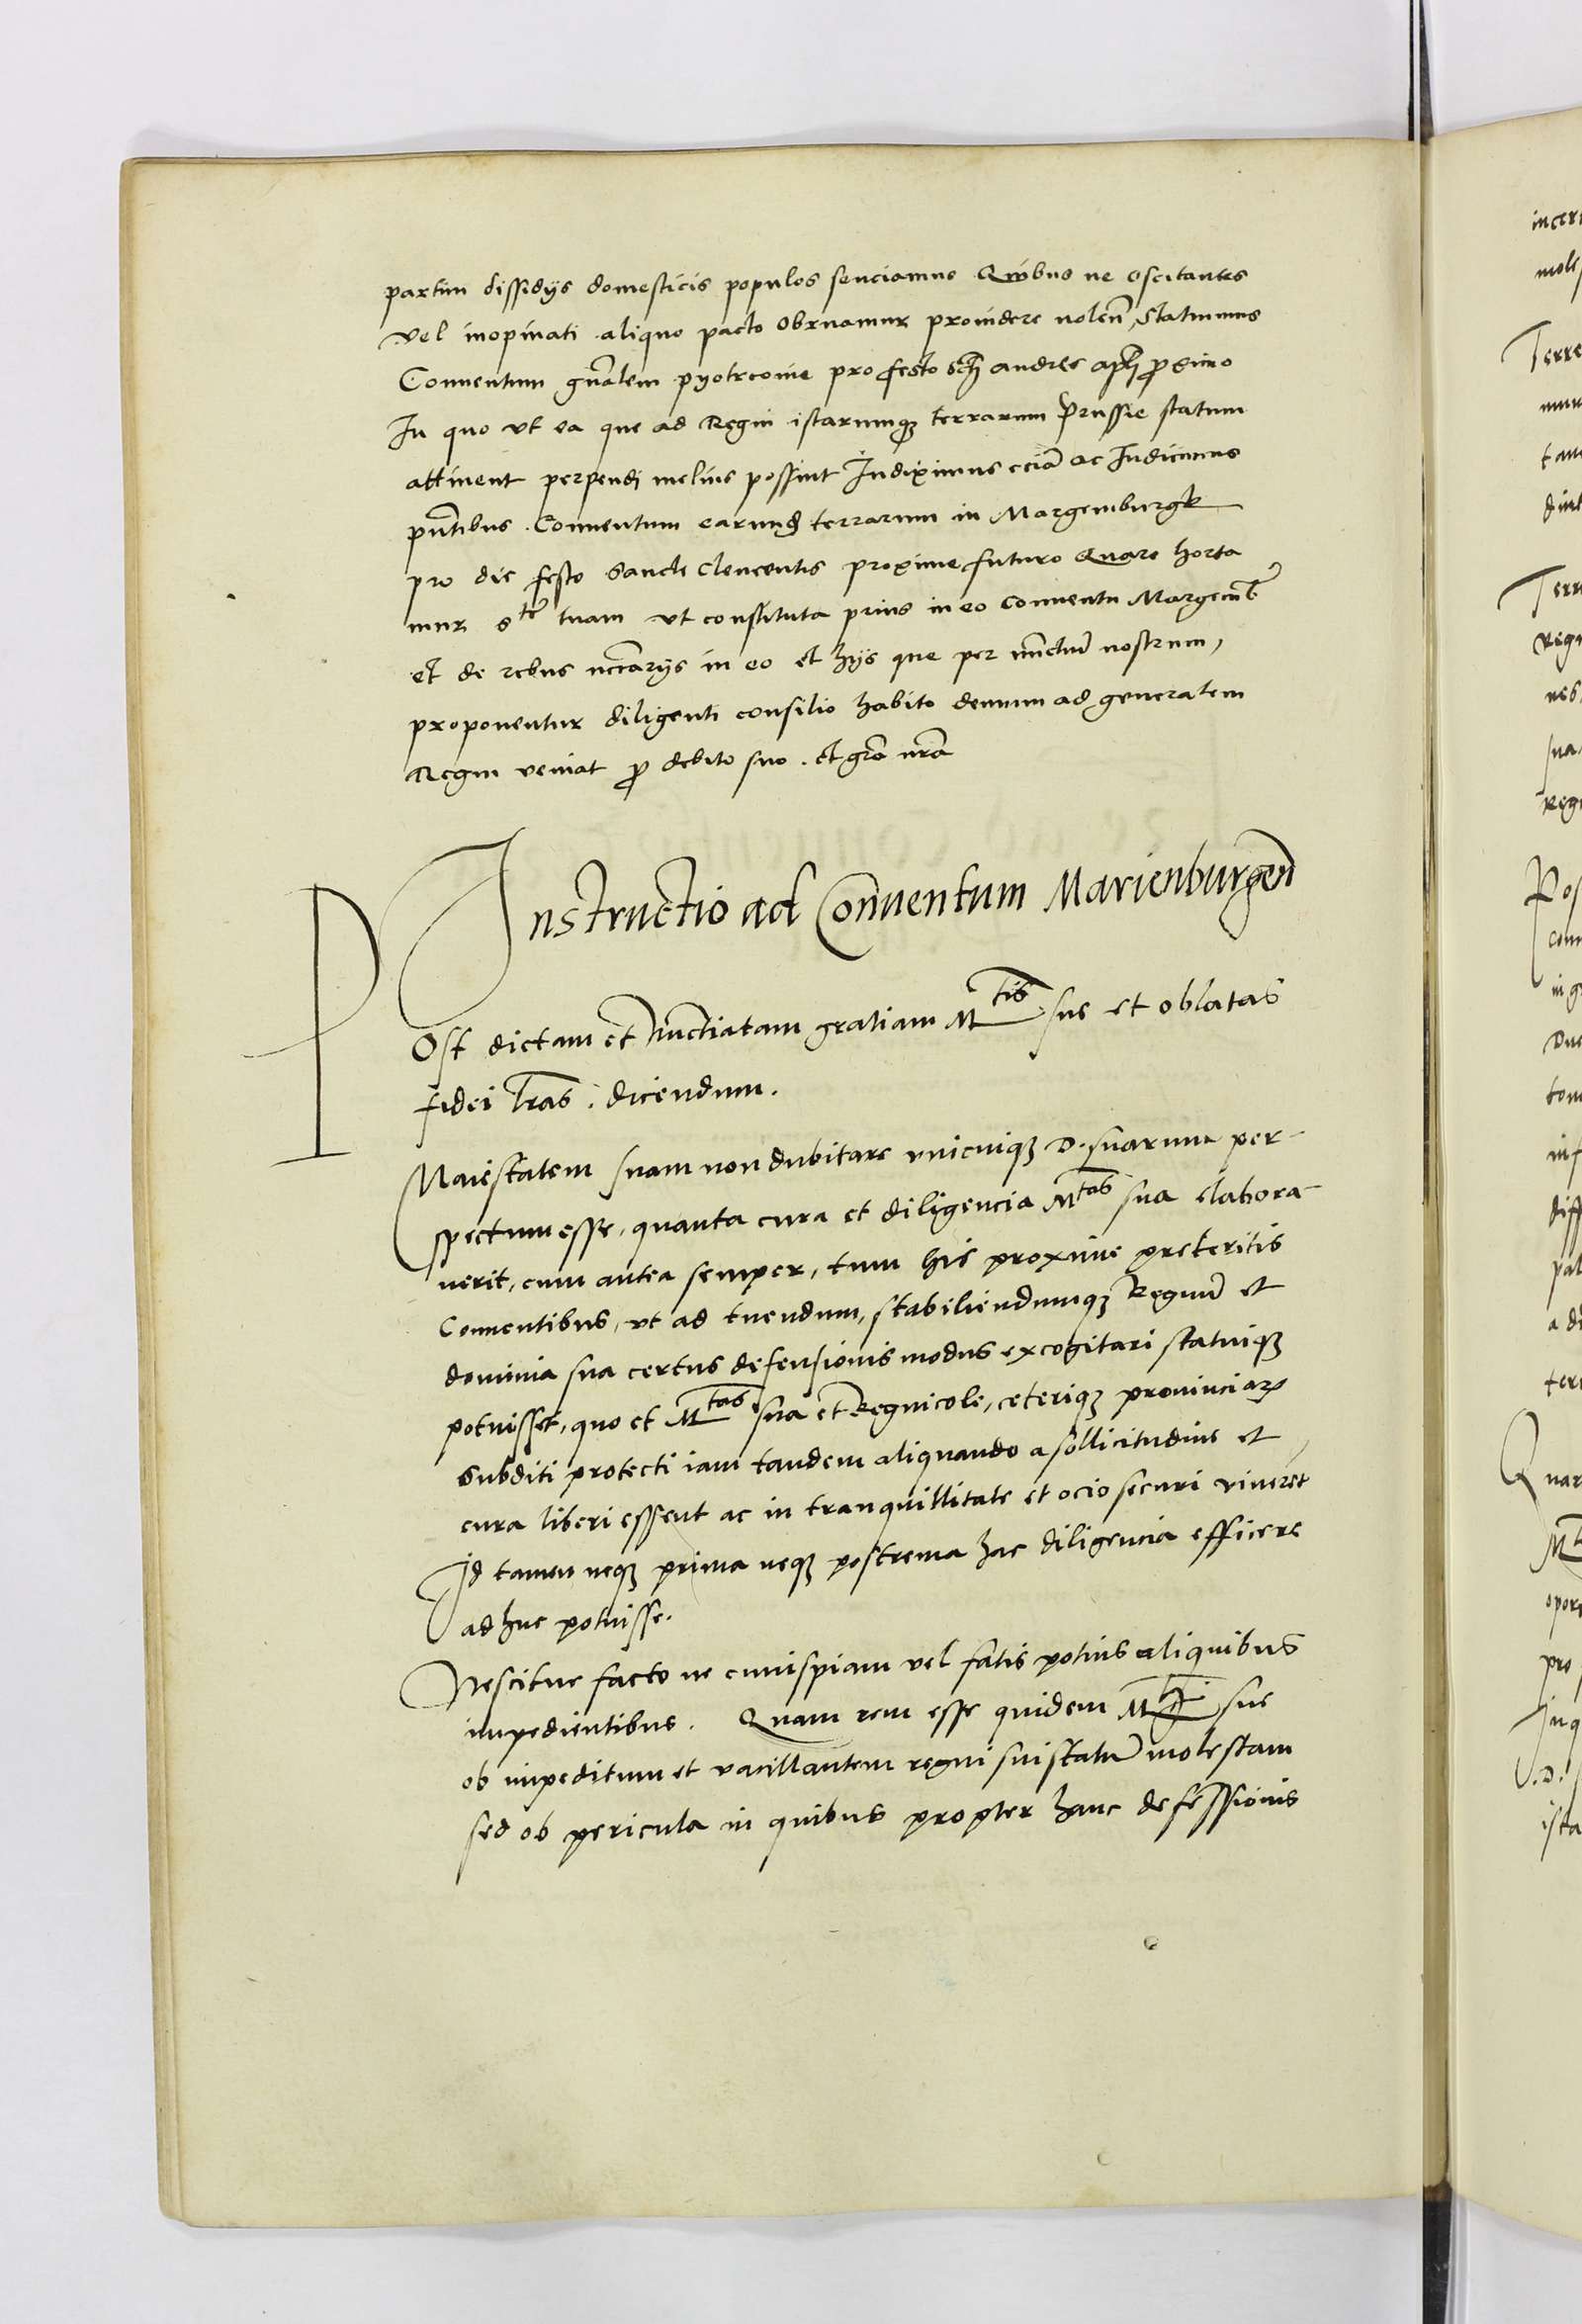 partim dissidijs domesticis populos senciamus Quibus ne oscitantes
vel inopinati aliquo pacto obruamur prouidere uolen̄, statuimus
Conuentum gn̄alem pyotrcouie pro festo scti andree apli proximo
In quo vt ea que ad Regni istarumq; terrarum Prussie statum
attinent perpendi melius possint Indiximus eciā ac Indicimus
pn̄tibus. Conuentum earund terrarum in Margemburgk
pro die festo Sancti Clementis proxime futuro Quare horta
mur Stem tuam vt constituta prius in eo conuentu Margemb
et de rebus nccārijs in eo et hijs que per nunctiū nostrum,
proponentur diligenti consilio habito demum ad generalem
Regni veniat pro debito suo. et grā nrā
Instructio ad Conuentum Marienburgen̄
POst dictam et Nunctiatam gratiam Mtis sue et oblatas
fidei lr̄as. dicendum.
Maiestatem suam non dubitare vnicuiq; D. suarum per-
spectum esse, quanta cura et diligencia Mtas sua elabora-
uerit, cum antea semper, tum his proxime preteritis
Conuentibus, vt ad tuendum, stabiliendumq; Regnū et
dominia sua certus defensionis modus excogitari statuiq;
potuisset, quo et Mtas sua et Regnicole, ceteriq; prouinciar
Subditi protecti iam tandem aliquando a sollicitudine et
cura liberi essent ac in tranquillitate et ocio securi viuerēt
Id tamen neq; prima neq; postrema hac diligencia efficere
ad huc potuisse.
Nescitur facto ne cuiuspiam vel fatis potius aliquibus
impedientibus. Quam rem esse quidem Mti sue
ob impeditum et vacillantem regni sui statū molestam
sed ob pericula in quibus propter hanc defessionis